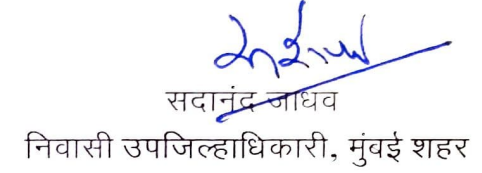 सदानंद जाधव
निवासी उपजिल्हाधिकारी, मुंबई शहर